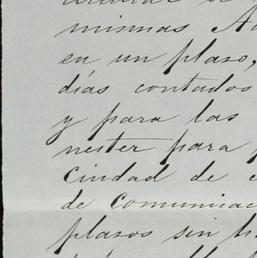 mismas
en un plazo,
días contados
y para las
nester para
ciudad de
de comunicac
plazos sin h